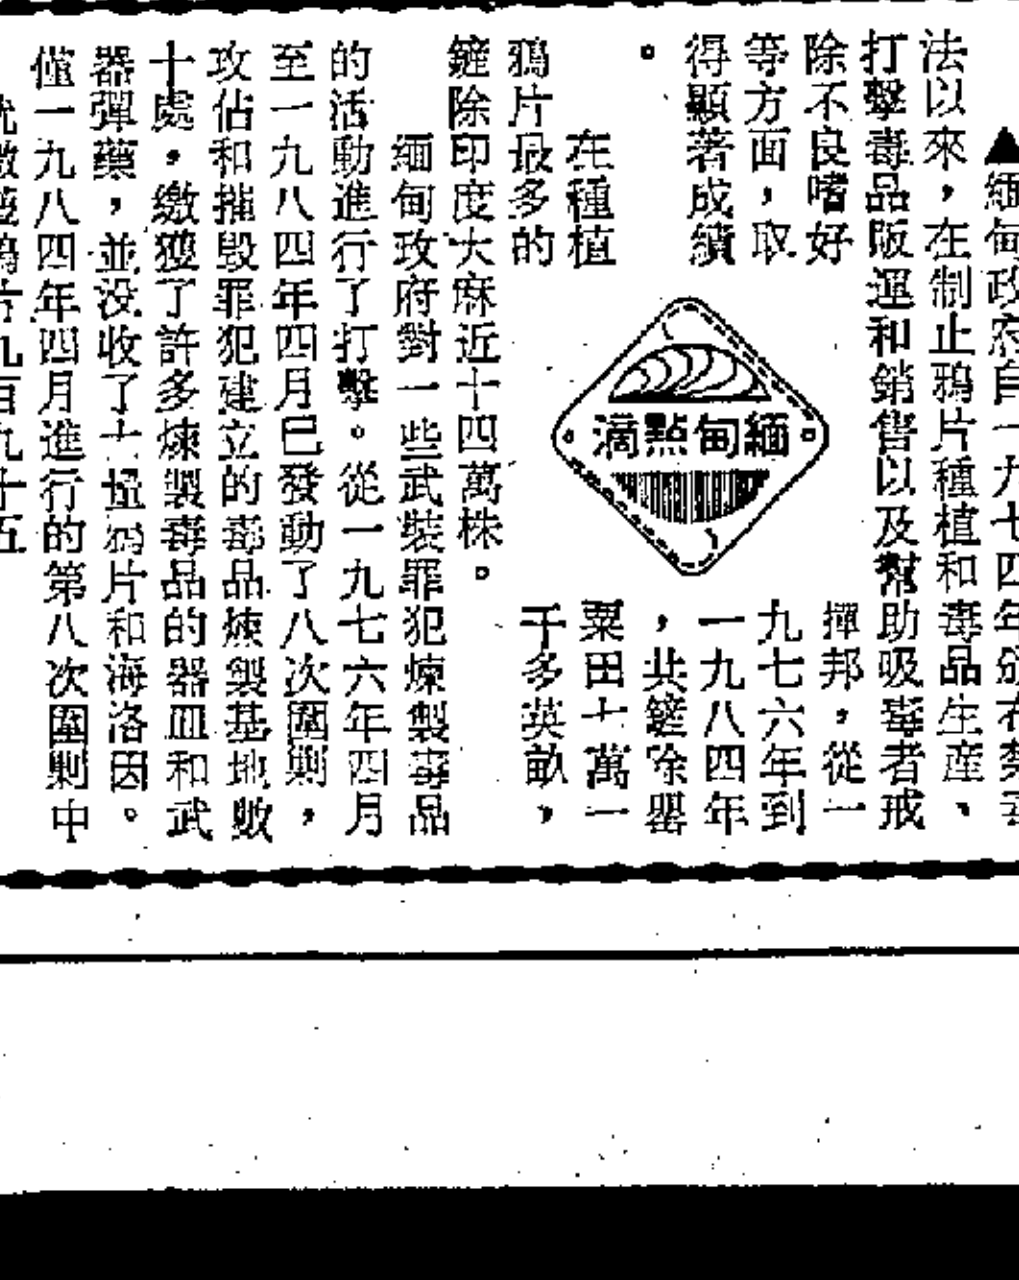 ▲緬甸政府自一九七四年頒布禁毒
法以來，在制止鴉片種植和毒品生産、
打擊毒品販運和銷售以及幫助吸毒者戒
除不良嗜好
等方面，取
得顯著成績
。
緬甸點滴
在種植
鴉片最多的
撣邦，從一
九七六年到
一九八四年
，共鏟除罌
粟田七萬一
千多英畝，
鏟除印度大麻近十四萬株。
緬甸政府對一些武裝罪犯煉製毒品
的活動進行了打擊。從一九七六年四月
至一九八四年四月已發動了八次圍剿，
攻佔和摧毀罪犯建立的毒品煉製基地數
十處，繳獲了許多煉製毒品的器皿和武
器彈藥，並没收了大量鴉片和海洛因。
僅一九八四年四月進行的第八次圍剿中
就繳獲鴉片九百九十五